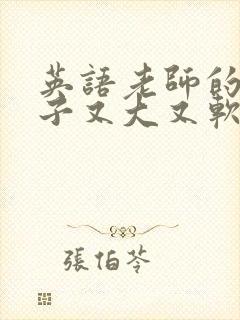 英語老師的
子又大又軟
張伯苓